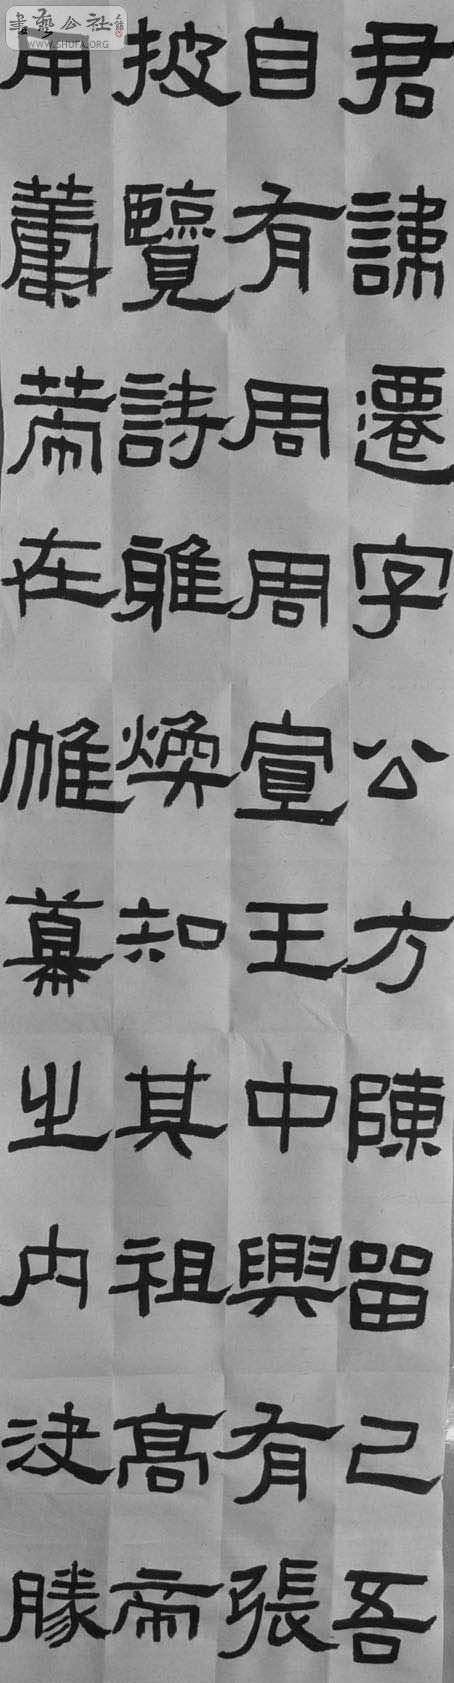 君諱遷字公方陳留己吾
自有周周宣王中興有張
披覽詩雅煥知其祖高帝
用籌策在帷幕之內決勝
書藝公社
WWW.SHUFA.ORG